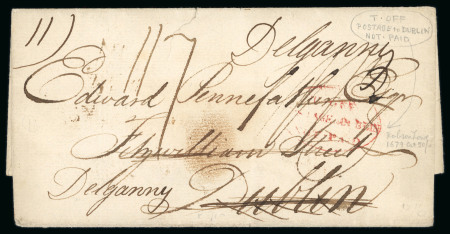 11)
T. OFF
POSTAGE to DUBLIN
NOT. PAID
Delganny
Edward Pennefather Esqr
117
Fitzwilliam Street
Delganny Dublin